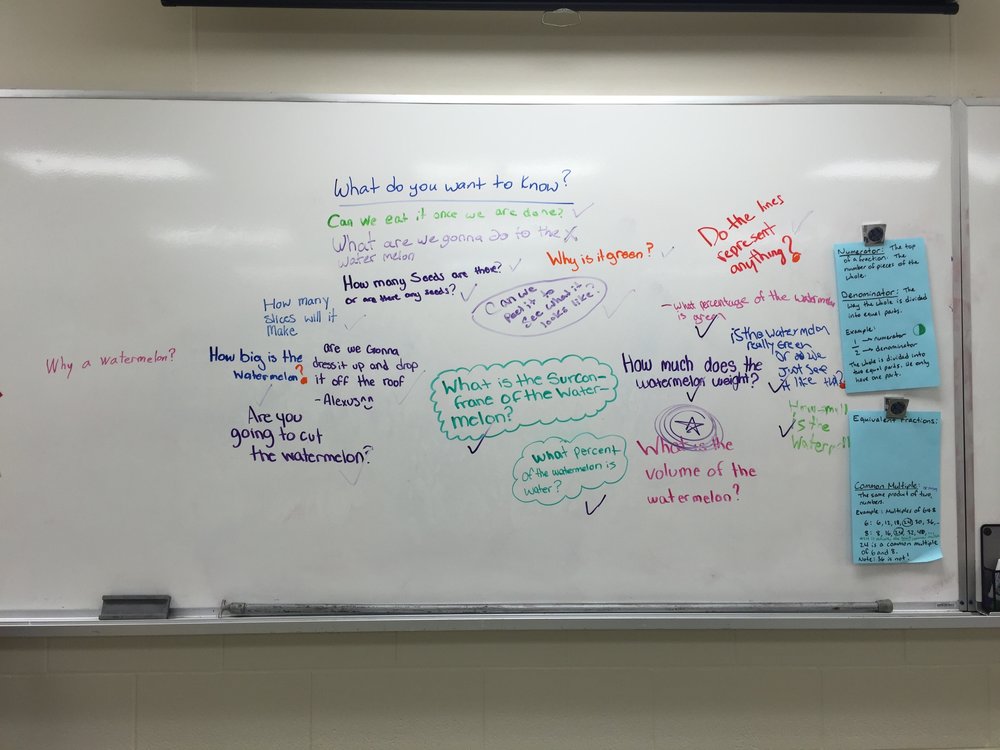 What do you want to know?
Can we eat it once we are done?
What are we gonna do to the
water melon
How many Seeds are there?
or are there any seeds?
Why is it green?
Do the lines
represent
anything?
How many
slices will it
make
Can we
peel it to
see what it
looks like?
- What percentage of the watermelon
is green
is the watermelon
really Green
Or do we
Just see
it like that?
Why a watermelon?
How big is the
watermelon?
are we Gonna
dress it up and drop
it off the roof
- Alexus^^
What is the Surcon-
frane of the Water-
melon?
How much does the
watermelon weight?
Are you
going to cut
the watermelon?
What percent
of the watermelon is
water?
What is the
volume of the
watermelon?
is the
Numerator: The top
of a fraction. The
number of pieces of the
whole.
Denominator: The
way the whole is divided
into equal parts.
Example:
1 → numerator
2 → denominator
The whole is divided into
two equal parts. We only
have one part.
Equivalent Fractions:
Common Multiple:
The same product of two
numbers.
Example: Multiples of 6+8
6: 6, 12, 18, 24, 30, 36,...
8: 8, 16, 24, 32, 40,...
24 is a common multiple
of 6 and 8.
Note: 36 is not!